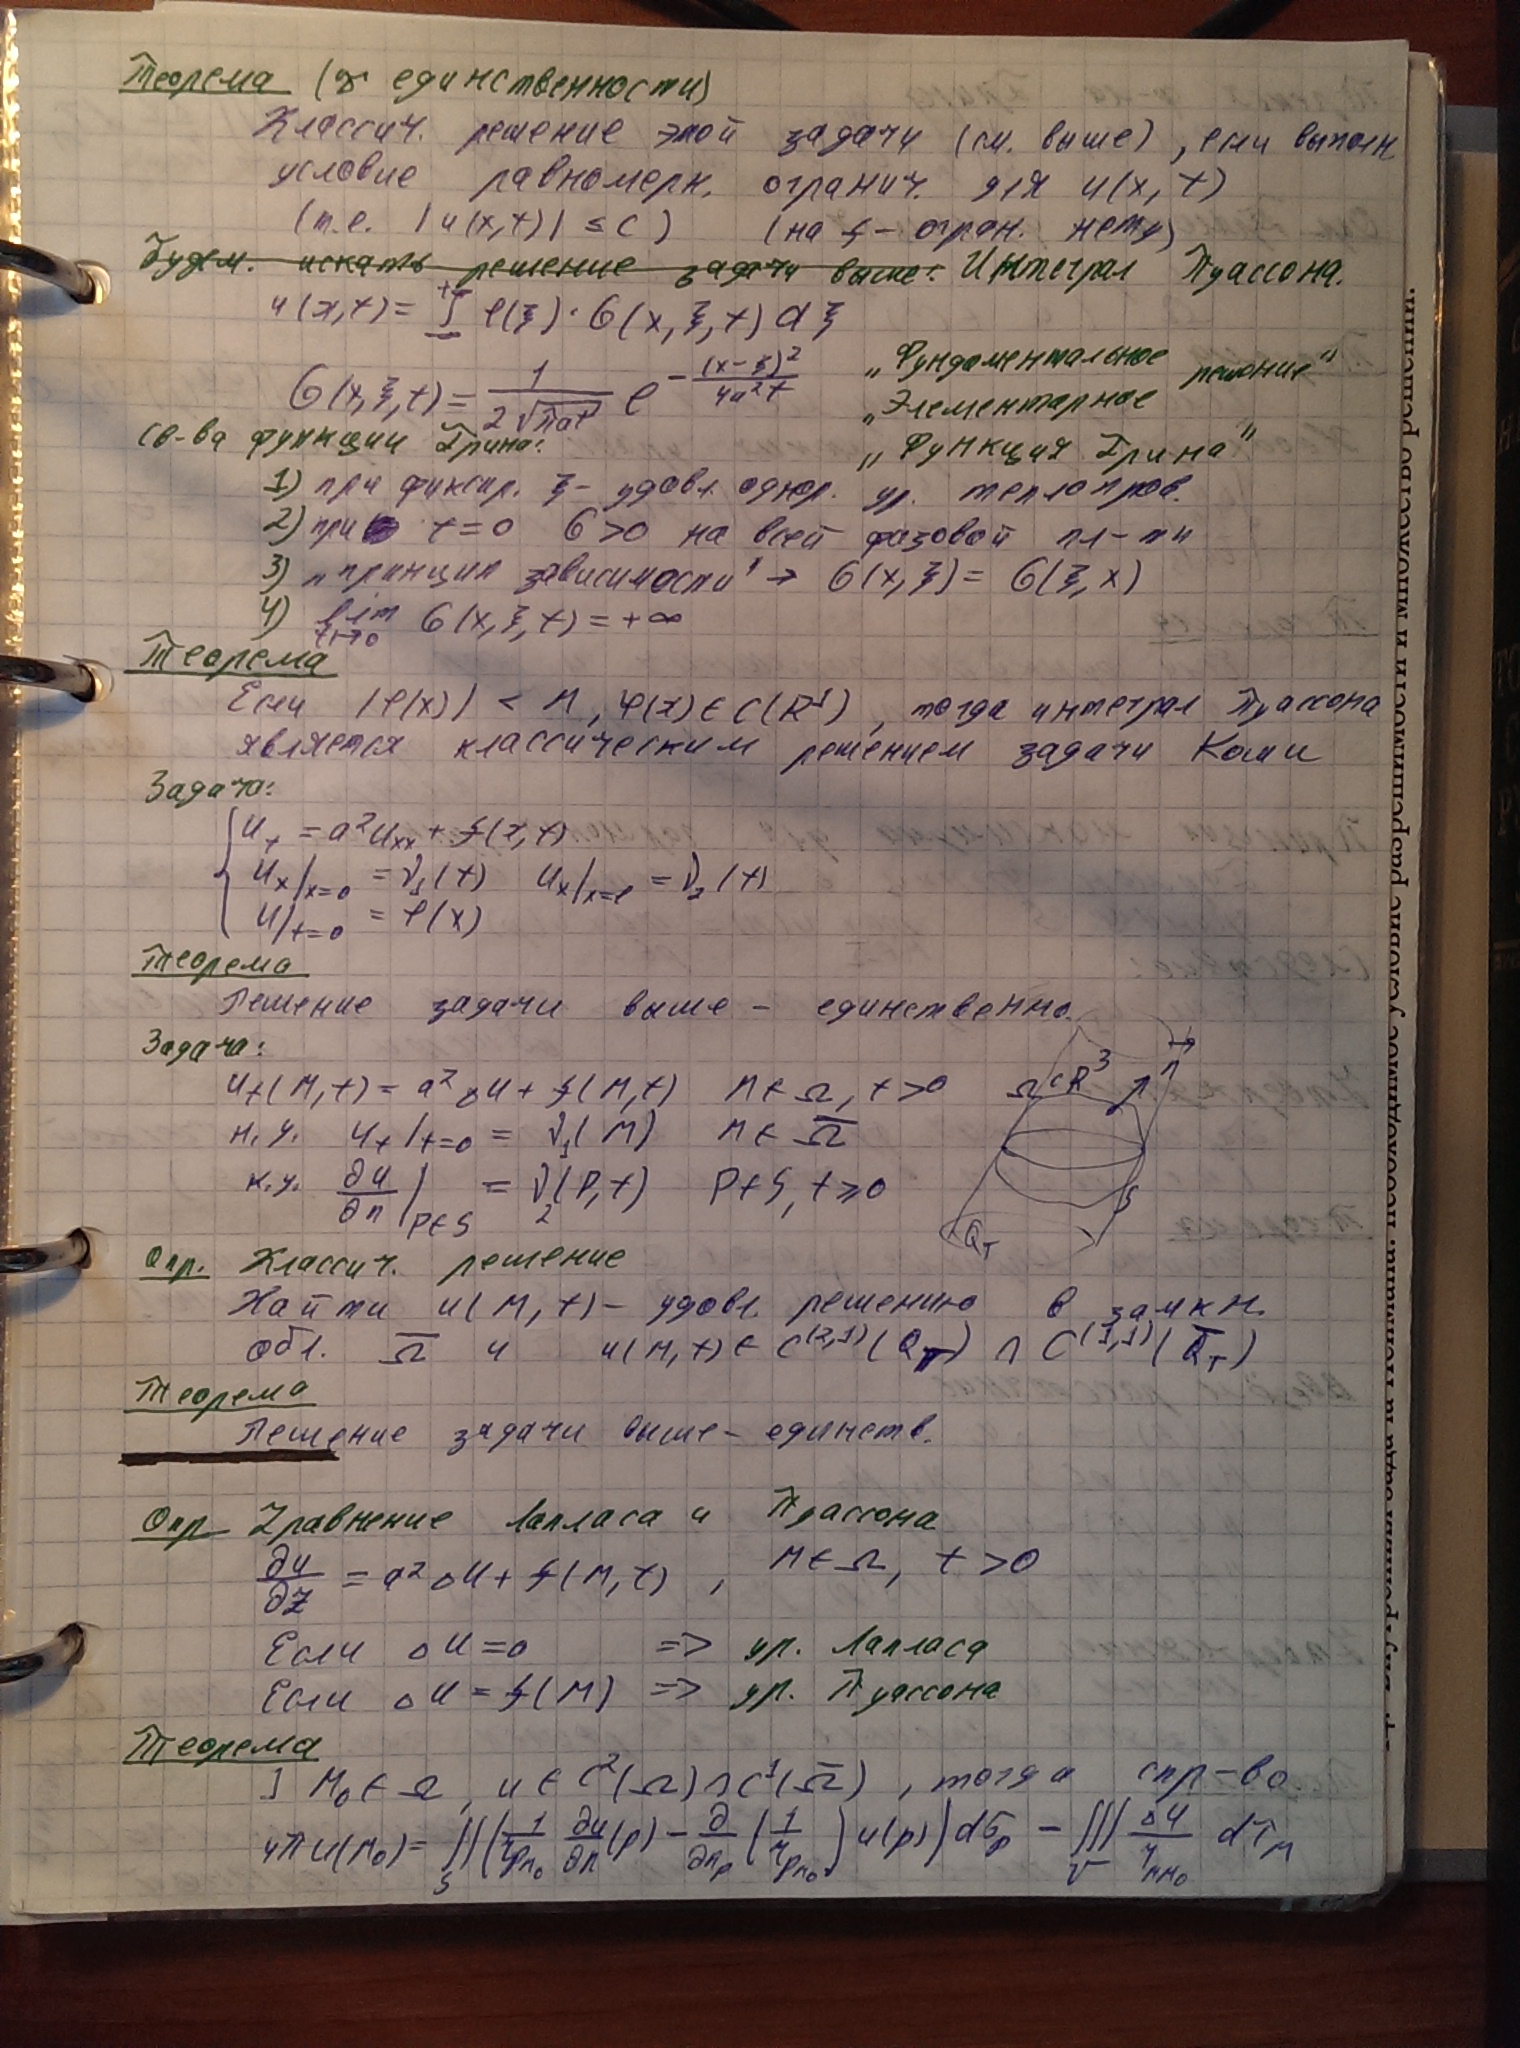 Теорема (о единственности)
Классич. решение этой задачи (см. выше), если выполн
условие равномерн. огранич. для u(x,t)
(т.е. |u(x,t)| ≤ C) (на f – огран. нету)
Будем. искать решение задачи выше: Интеграл Пуассона.
u(x,t) = ∫ φ(ξ)·G(x,ξ,t)dξ
G(x,ξ,t) = 1/(2√(πat)) e^(-(x-ξ)²/(4a²t))
„Фундаментальное решение"
„Элементарное
„Функция Грина"
св-ва функции Грина:
1) при фиксир. ξ – удовл. однор. ур. теплопров.
2) при t=0 G>0 на всей фазовой пл-ти
3) "принцип зависимости" → G(x,ξ) = G(ξ,x)
4) lim t→0 G(x,ξ,t) = +∞
Теорема
Если |φ(x)| < M, φ(x) ∈ C(R¹), тогда интеграл Пуассона
является классическим решением задачи Коши
Задача:
u_t = a²u_xx + f(x,t)
u_x|x=0 = ν₁(t) u_x|x=l = ν₂(t)
u|t=0 = φ(x)
Теорема
Решение задачи выше – единственно.
Задача:
u_t(M,t) = a²Δu + f(M,t) M ∈ Ω, t>0 Ω ⊂ R³ n
н.у. u_t|t=0 = ν₁(M) M ∈ Ω̅
к.у. ∂u/∂n|P∈S = ν₂(P,t) P∈S, t≥0
S
Q_T
Опр. Классич. решение
Найти u(M,t) – удовл. решению в замкн.
обл. Ω̅ и u(M,t) ∈ C^(2,1)(Q_T) ∩ C^(1,1)(Q̅_T)
Теорема
Решение задачи выше – единств.
Опр Уравнение Лапласа и Пуассона
∂u/∂t = a²Δu + f(M,t), M ∈ Ω, t>0
Если Δu=0 => ур. Лапласа
Если Δu = f(M) => ур. Пуассона
Теорема
] M₀ ∈ Ω, u ∈ C²(Ω)∩C¹(Ω̅), тогда спр-во.
4πu(M₀) = ∬_S (1/r_PM₀ ∂u/∂n(p) − ∂/∂n_p (1/r_PM₀) u(p)) dσ_p − ∭_V Δu/r_MM₀ dτ_M